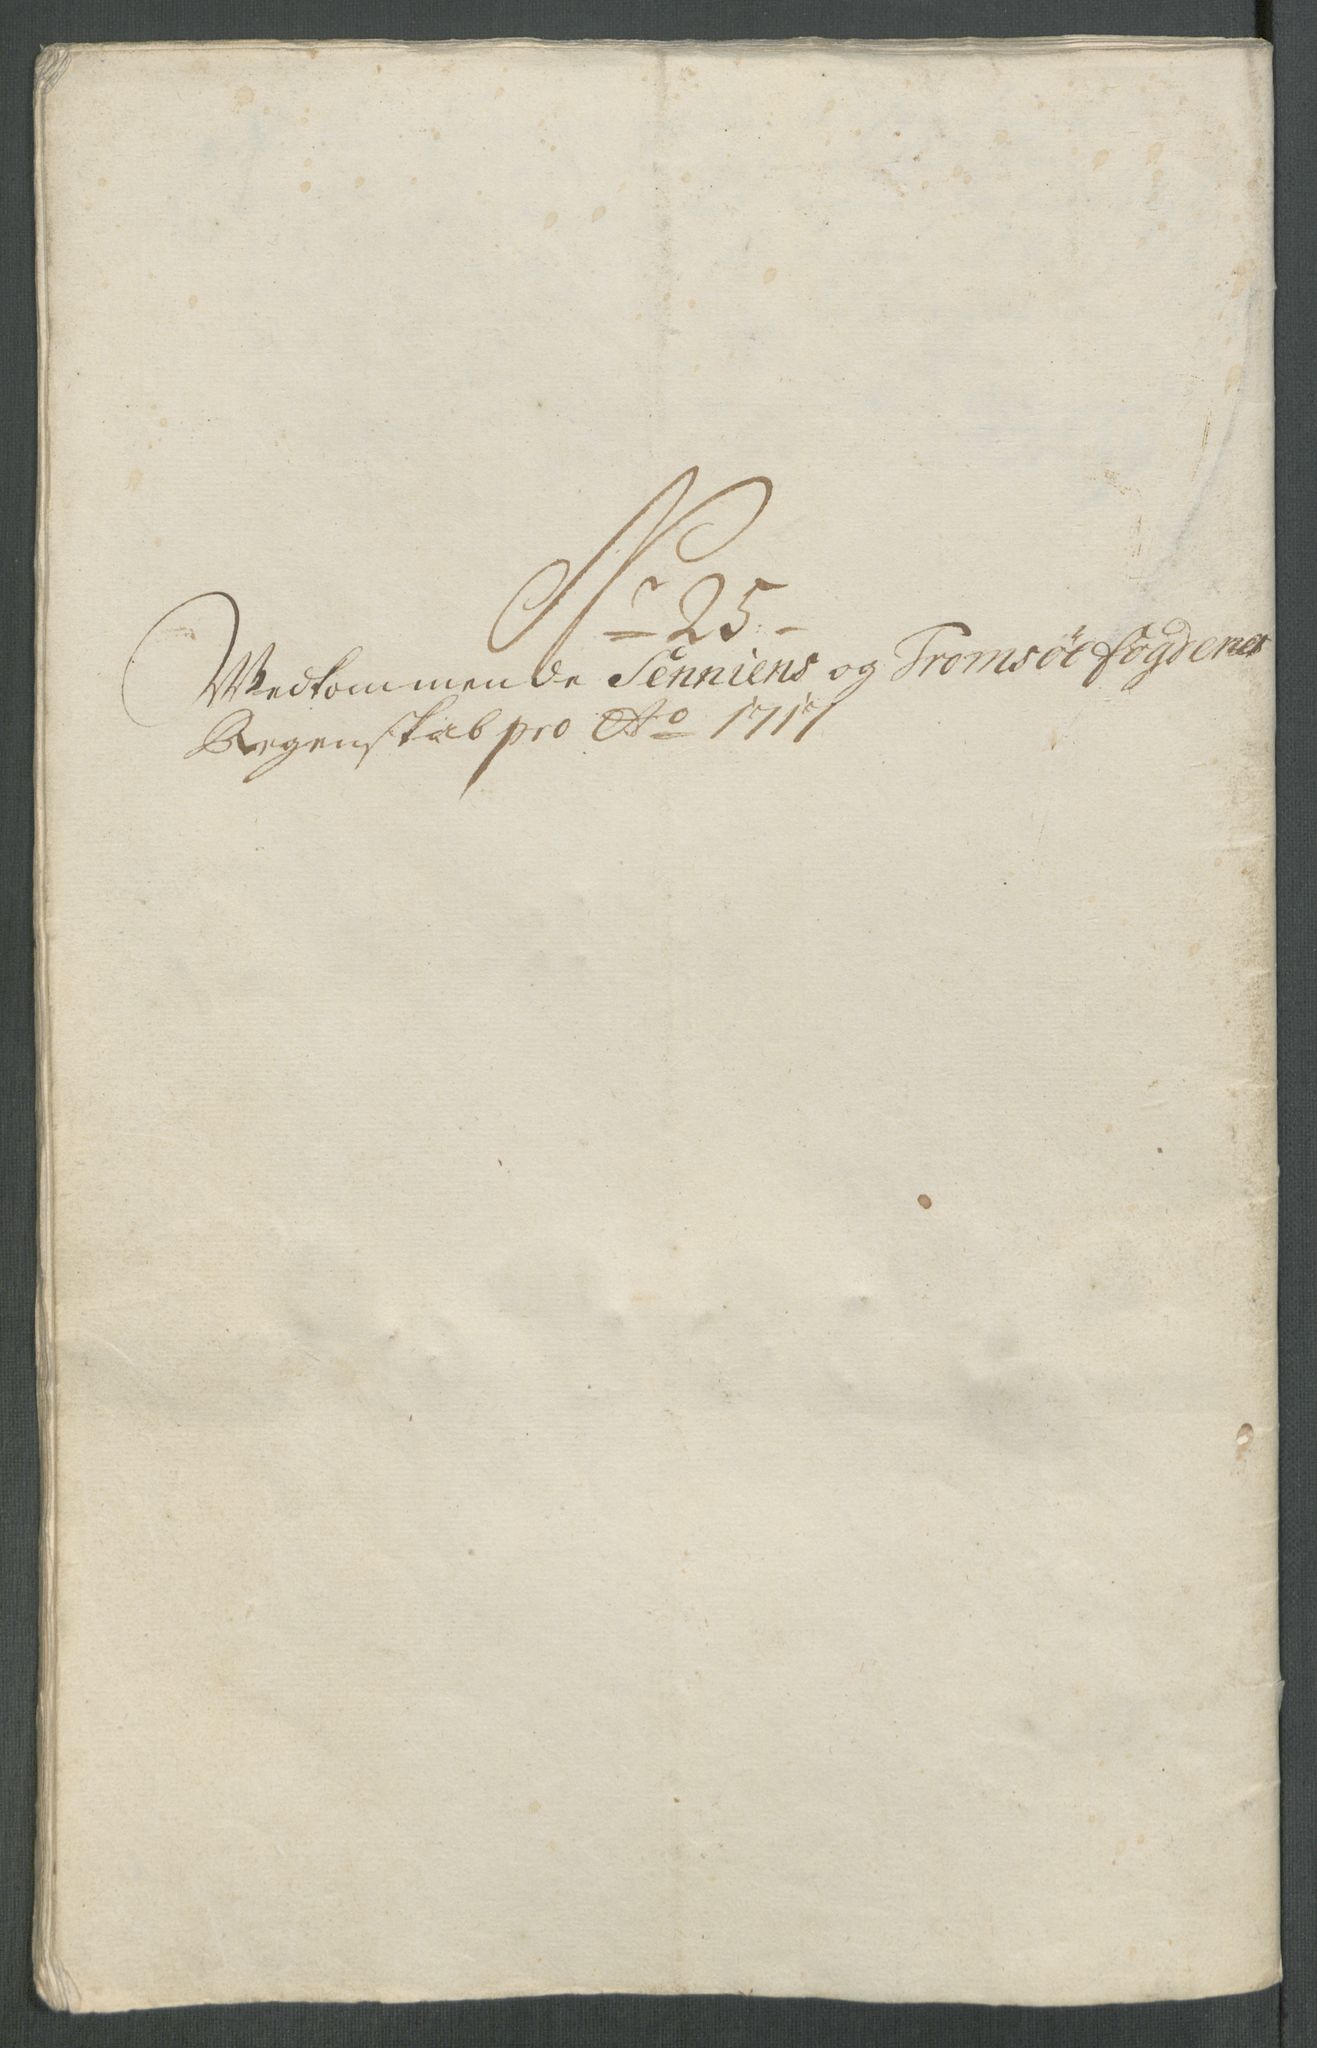 Nr 25.
Vedkommende Senniens og Tromsöe fogderies
Regenskab pro Ao 1717